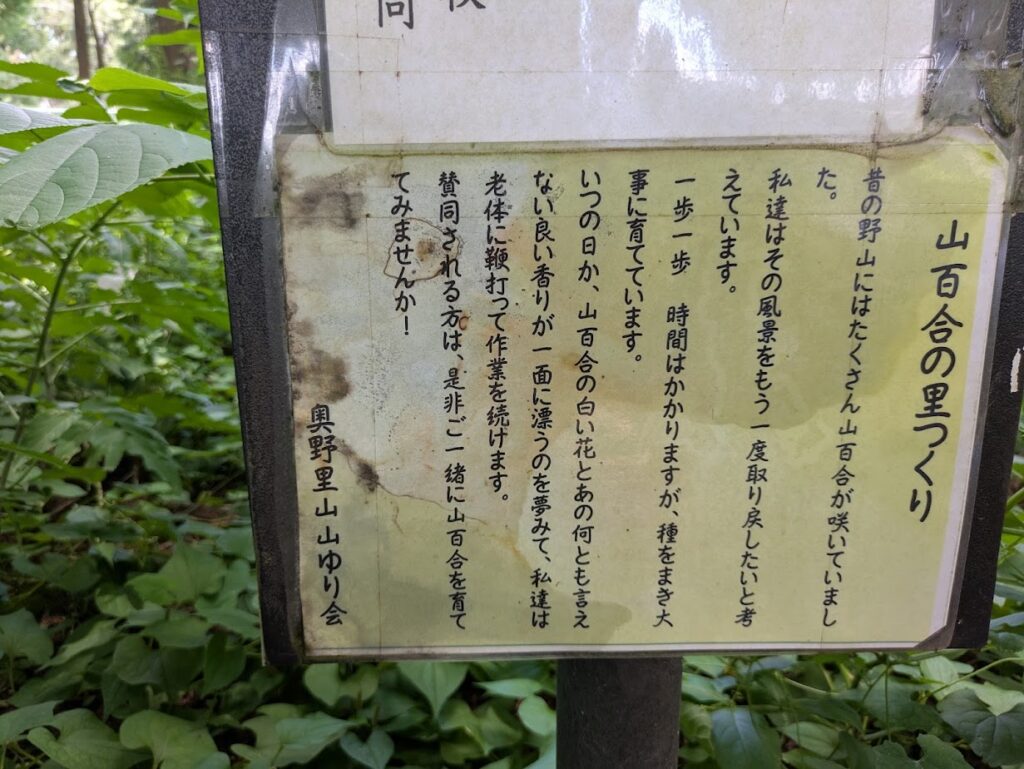 山百合の里つくり
昔の野山にはたくさん山百合が咲いていまし
た。
私達はその風景をもう一度取り戻したいと考
えています。
一歩一歩　時間はかかりますが、種をまき大
事に育てています。
いつの日か、山百合の白い花とあの何とも言え
ない良い香りが一面に漂うのを夢みて、私達は
老体に鞭打って作業を続けます。
賛同される方は、是非ご一緒に山百合を育て
てみませんか！
奥野里山山ゆり会